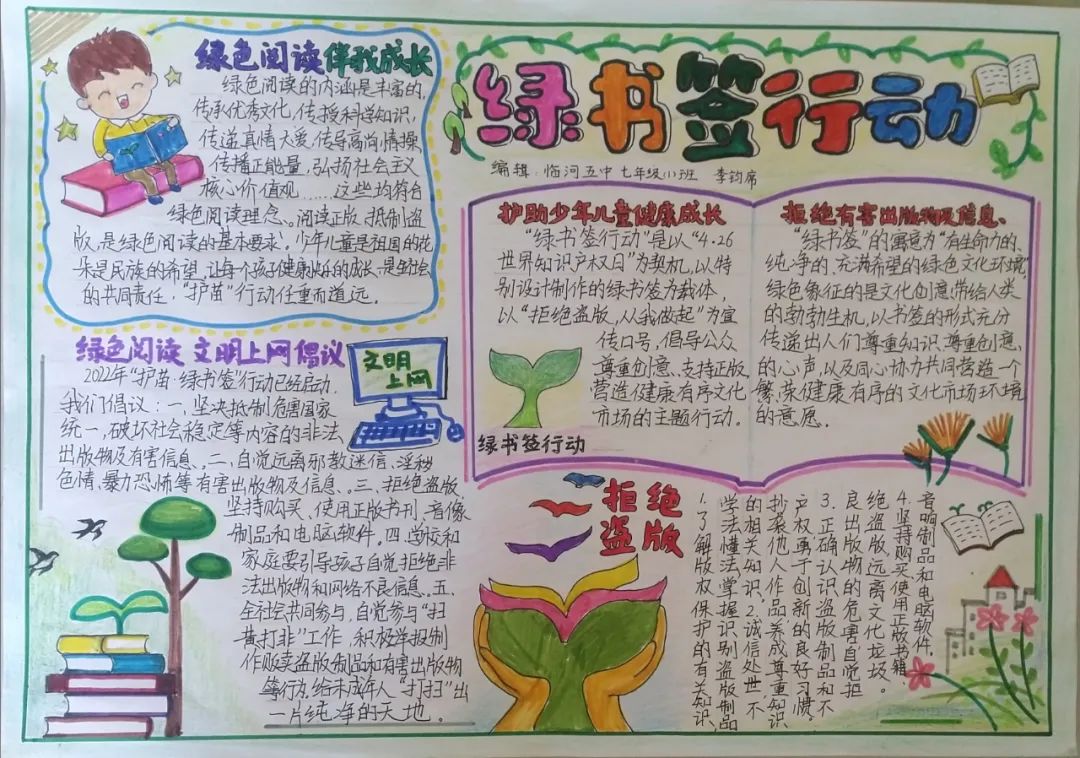 绿书签行动
编辑：临河五中 七年级(1)班 李钧席
绿色阅读伴我成长
绿色阅读的内涵是丰富的，
传承优秀文化，传授科学知识，
传递真情大爱，传导高尚情操，
传播正能量，弘扬社会主义
核心价值观……这些均符合
绿色阅读理念。阅读正版，抵制盗
版，是绿色阅读的基本要求。少年儿童是祖国的花
朵是民族的希望，让每个孩子健康快乐的成长，是全社会
的共同责任，“护苗”行动任重而道远。
护助少年儿童健康成长
“绿书签行动”是以“4.26
世界知识产权日”为契机，以特
别设计制作的绿书签为载体，
以“拒绝盗版，从我做起”为宣
传口号，倡导公众
尊重创意、支持正版，
营造健康有序文化
市场的主题行动。
绿书签行动
拒绝有害出版物及信息、
“绿书签”的寓意为“有生命力的、
纯净的、充满希望的绿色文化环境”
绿色象征的是文化创意，带给人类
的勃勃生机，以书签的形式充分
传递出人们尊重知识、尊重创意、
的心声，以及同心协力共同营造一个
繁荣健康有序的文化市场环境
的意愿。
绿色阅读 文明上网倡议
文明
上网
2022年“护苗·绿书签”行动已经启动，
我们倡议：一、坚决抵制危害国家
统一，破坏社会稳定等内容的非法
出版物及有害信息、。二、自觉远离邪教迷信、淫秽
色情、暴力恐怖等有害出版物及信息、。三、拒绝盗版，
坚持购买、使用正版书刊，音像
制品和电脑软件。四、学校和
家庭要引导孩子自觉拒绝非
法出版物和网络不良信息。五、
全社会共同参与，自觉参与“扫
黄打非”工作，积极举报制
作贩卖盗版制品和有害出版物
等行为，给未成年人“打扫”出
一片纯净的天地。
拒绝
盗版
音响制品和电脑软件.
4.坚持购买使用正版书籍、
绝盗版，远离文化垃圾。
良出版物的危害，自觉拒
3.正确认识盗版制品和不
产权，勇于创新的良好习惯。
抄袭他人作品，养成尊重知识
的相关知识2.诚信处世，不
学法懂法，学握识别盗版制品
1.了解版权保护的有关知识，